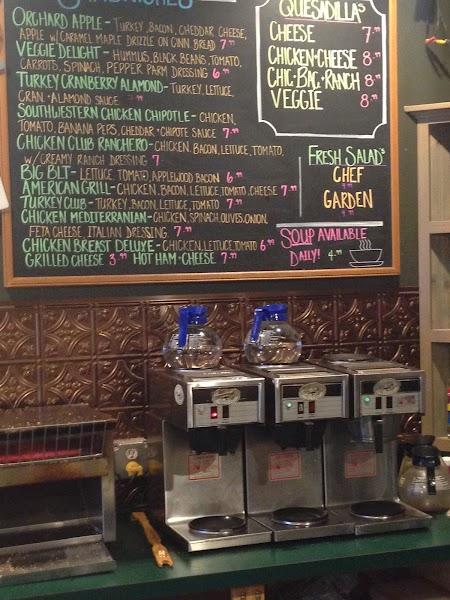 SANDWICHES
ORCHARD APPLE - TURKEY, BACON, CHEDDAR CHEESE,
APPLE W/ CARAMEL MAPLE DRIZZLE ON CINN BREAD 7.99
VEGGIE DELIGHT - HUMMUS, BLACK BEANS, TOMATO,
CARROTS, SPINACH, PEPPER PARM DRESSING 6.99
TURKEY CRANBERRY ALAMOND - TURKEY, LETTUCE,
CRAN · ALAMOND SAUCE 7.99
SOUTHWESTERN CHICKEN CHIPOTLE - CHICKEN,
TOMATO, BANANA PEPS, CHEDDAR · CHIPOTLE SAUCE 7.99
CHICKEN CLUB RANCHERO - CHICKEN, BACON, LETTUCE, TOMATO,
W/ CREAMY RANCH DRESSING 7
BIG BLT - LETTUCE, TOMATO, APPLEWOOD BACON 6.99
AMERICAN GRILL - CHICKEN, BACON, LETTUCE, TOMATO, CHEESE 7.99
TURKEY CLUB - TURKEY, BACON, LETTUCE, TOMATO 7.99
CHICKEN MEDITERRANIAN - CHICKEN, SPINACH, OLIVES, ONION,
FETA CHEESE ITALIAN DRESSING 7.99
CHICKEN BREAST DELUXE - CHICKEN, LETTUCE, TOMATO 6.99
GRILLED CHEESE 3.99 HOT HAM-CHEESE 7.99
QUESADILLA'S
CHEESE 7.99
CHICKEN-CHEESE 8.99
CHIC-BAC-RANCH 8.99
VEGGIE 8.99
FRESH SALAD'S
CHEF
GARDEN
SOUP AVAILABLE
DAILY! 4.99